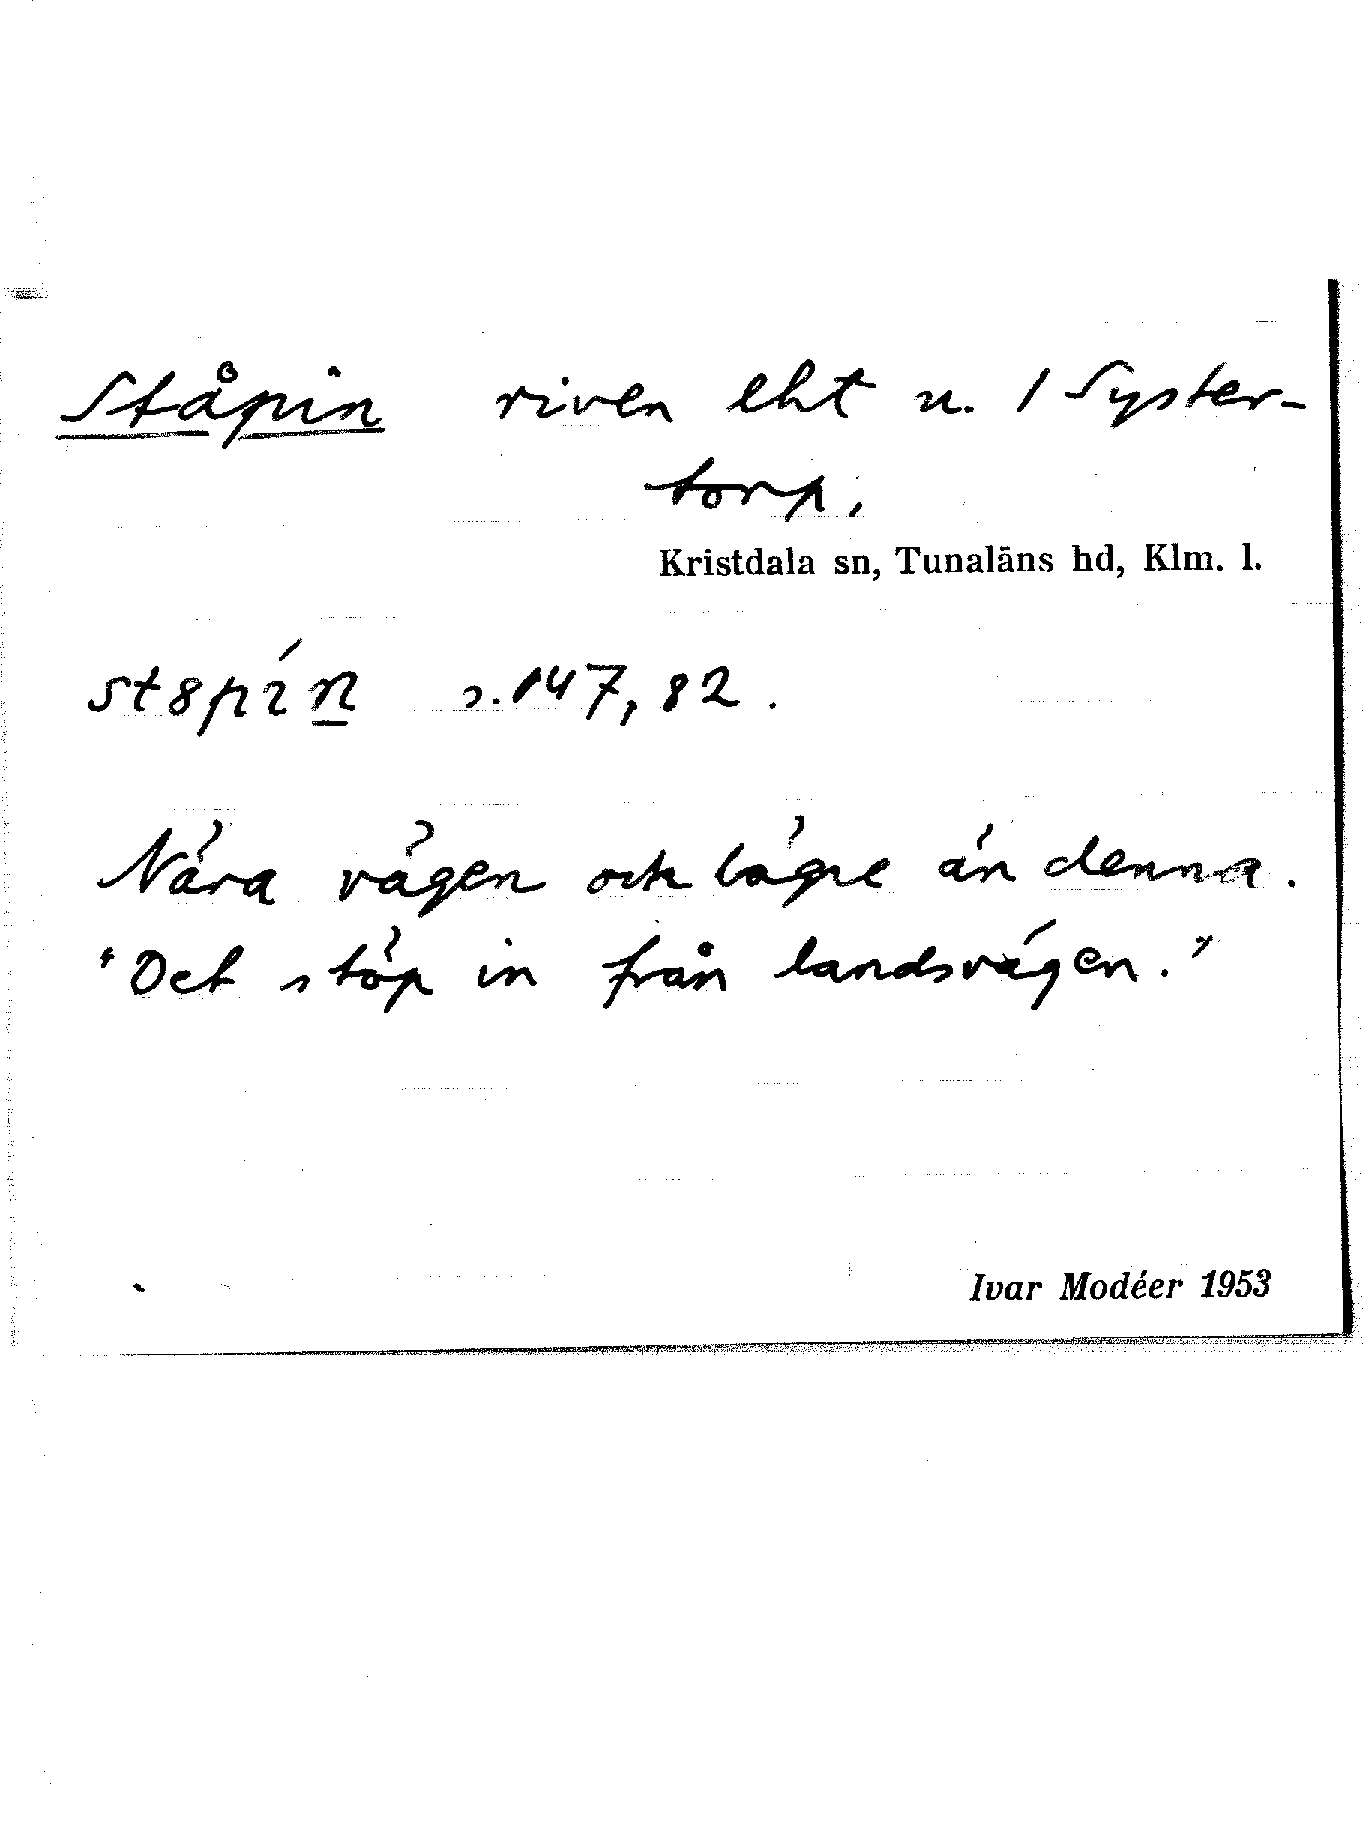 Ståpin riven lht u. 1 Syster-
torp,
Kristdala sn, Tunaläns hd, Klm. l.
st8pín s.147, 82.
Nära vägen och lägre än denna.
"Det stöp in från landsvägen."
Ivar Modéer 1953